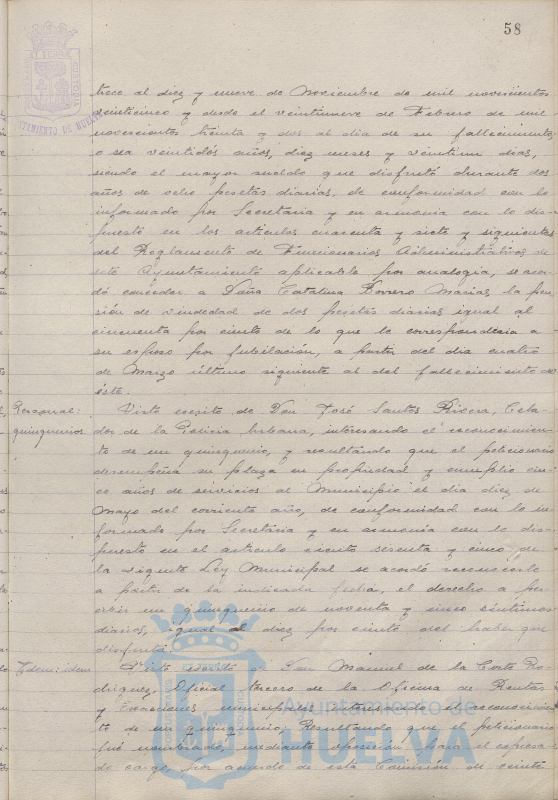 58
trece al diez y nueve de Noviembre de mil novecientos
veinticinco y desde el veintinueve de Febrero de mil
novecientos treinta y dos al día de su fallecimiento,
o sea veintidós años, diez meses y veintiun dias,
siendo el mayor sueldo que disfrutó durante dos
años de ocho pesetas diarias, de conformidad con lo
informado por Secretaria y en armonia con lo dis-
puesto en los articulos cuarenta y siete y siguientes
del Reglamento de Funcionarios Administrativos de
este Ayuntamiento aplicable por analogia, se acor-
dó conceder a Doña Catalina Borrero Macias la pen-
sión de viudedad de dos pesetas diarias igual al
cincuenta por ciento de lo que le correspondería a
su esposo por jubilación, a partir del dia cuatro
de Marzo último siguiente al del fallecimiento de
éste.
Personal: Visto escrito de Don José Santos Rivera, Cela-
quinquenios. dor de la Policia Urbana, interesando el reconocimien-
to de un quinquenio, y resultando que el peticionario
desempeña su plaza en propiedad y cumplio cin-
co años de servicios al Municipio el dia diez de
Mayo del corriente año, de conformidad con lo in-
formado por Secretaria y en armonia con lo dis-
puesto en el articulo ciento sesenta y cinco de
la vigente Ley Municipal se acordó reconocerle
a partir de la indicada fecha, el derecho a per-
cibir un quinquenio de noventa y cinco centimos
diarios, igual al diez por ciento del haber que
disfruta.
Idem: idem Visto escrito de Don Manuel de la Corte Ro-
driguez, Oficial tercero de la Oficina de Rentas
y Exacciones municipales interesando el reconocimien-
to de un quinquenio; Resultando que el peticionario
fué nombrado, mediante oposición, para el expresa-
do cargo, por acuerdo de esta Comisión de veinte
Ayuntamiento de
HUELVA